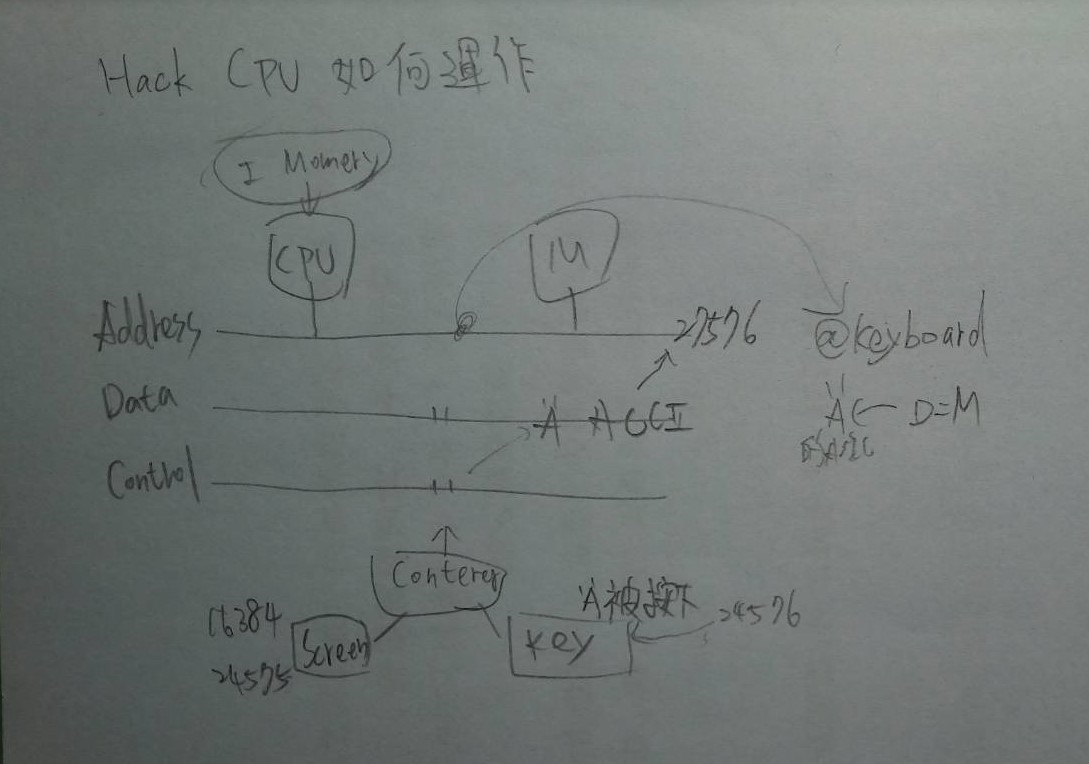 Hack CPU 如何運作
I Momery
CPU
M
Address
27576
@keyboard
Data
"A" ASCII
"A" ← D=M
的ASIC
Control
Conterer
"A"被按下
16384
24575
Screen
Key
24576